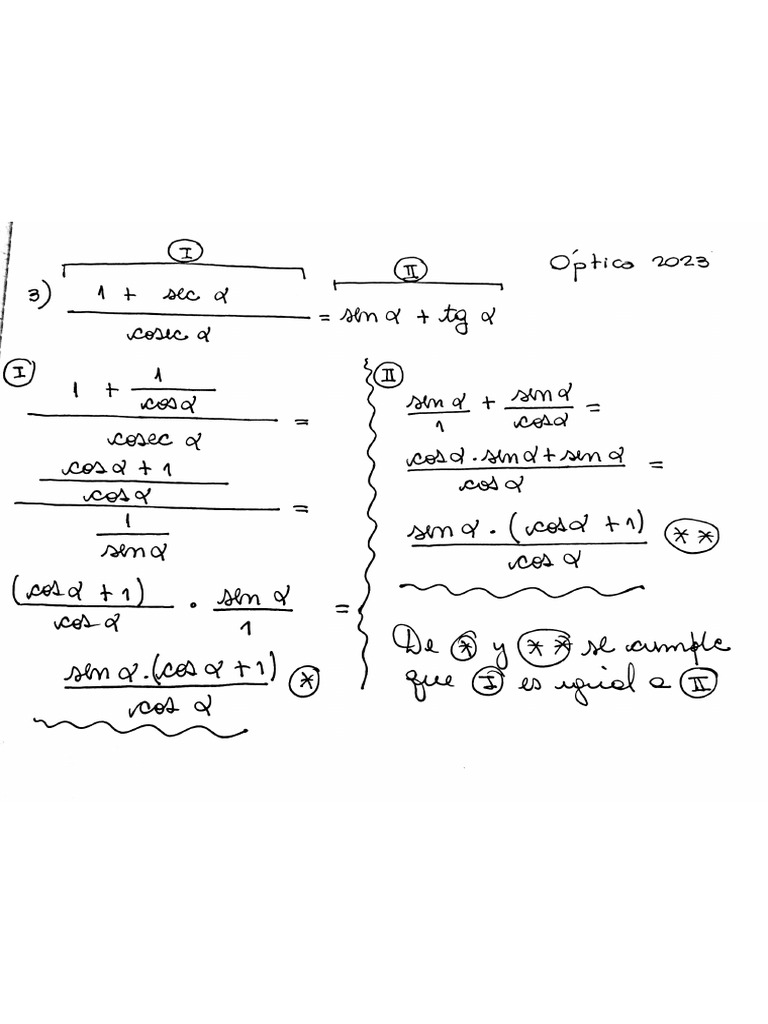 Óptico 2023
Ⓘ Ⓘⓘ
3) (1 + sec α) / (cosec α) = sen α + tg α
Ⓘ
(1 + 1/cos α) / (cosec α) =
((cos α + 1) / cos α) / (1 / sen α) =
(cos α + 1) / cos α · sen α / 1 =
sen α · (cos α + 1) / cos α (*)
(II)
sen α / 1 + sen α / cos α =
(cos α · sen α + sen α) / cos α =
sen α · (cos α + 1) / cos α (**)
De (*) y (**) se cumple
que (I) es igual a (II)